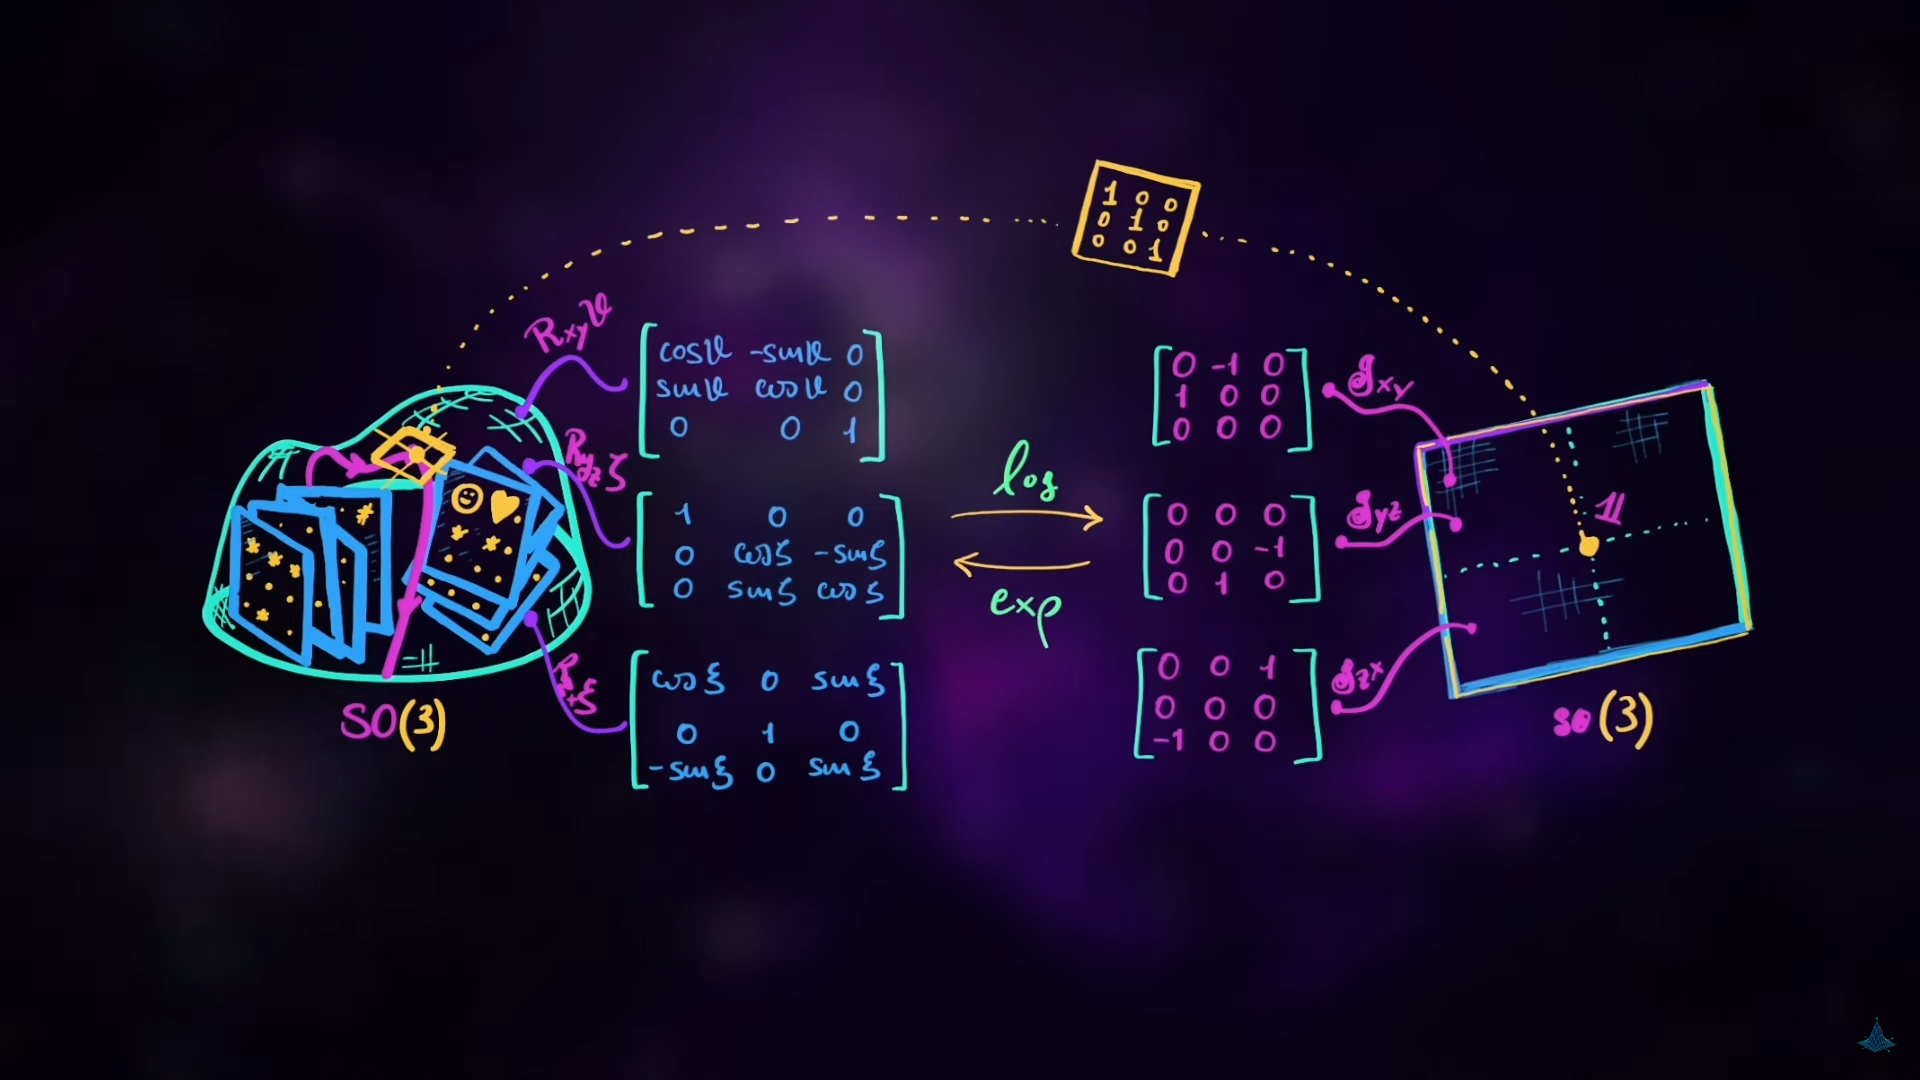 1 0 0
0 1 0
0 0 1
Rxyϑ
cosϑ -sinϑ 0
sinϑ cosϑ 0
0 0 1
Ryzζ
1 0 0
0 cosζ -sinζ
0 sinζ cosζ
cosξ 0 sinξ
0 1 0
-sinξ 0 sinξ
SO(3)
log
exp
0 -1 0
1 0 0
0 0 0
gxy
0 0 0
0 0 -1
0 1 0
gyz
0 0 1
0 0 0
-1 0 0
gzx
𝟙
so(3)